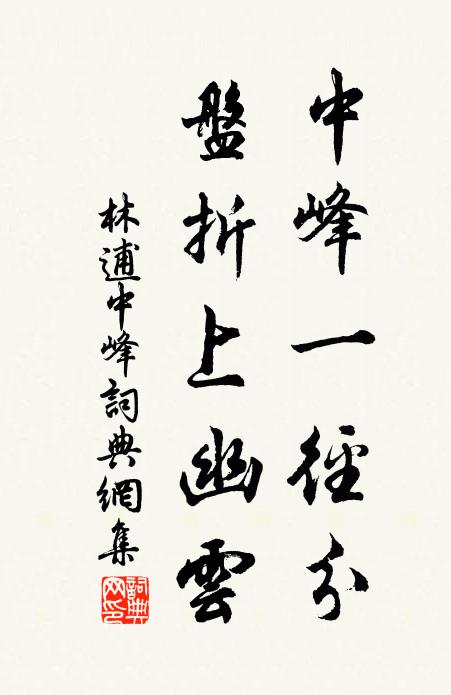 中峰一徑分
盤折上幽雲
林逋中峰詞典網集
詞典网印